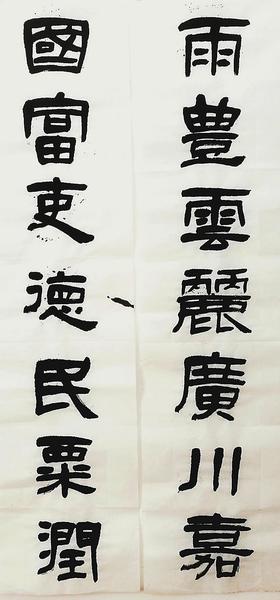 雨豊雲麗廣川嘉
國富吏徳民粟潤